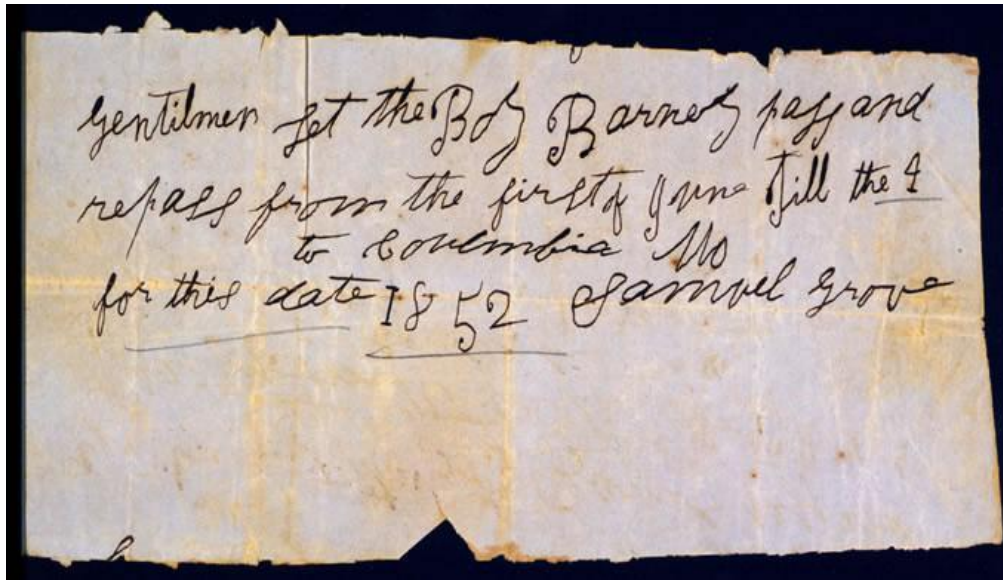 Gentilmen let the Boy Barney pass and
repass from the first of June till the 4
to Coulmbia Mo
for this date 1852 Samuel Grove